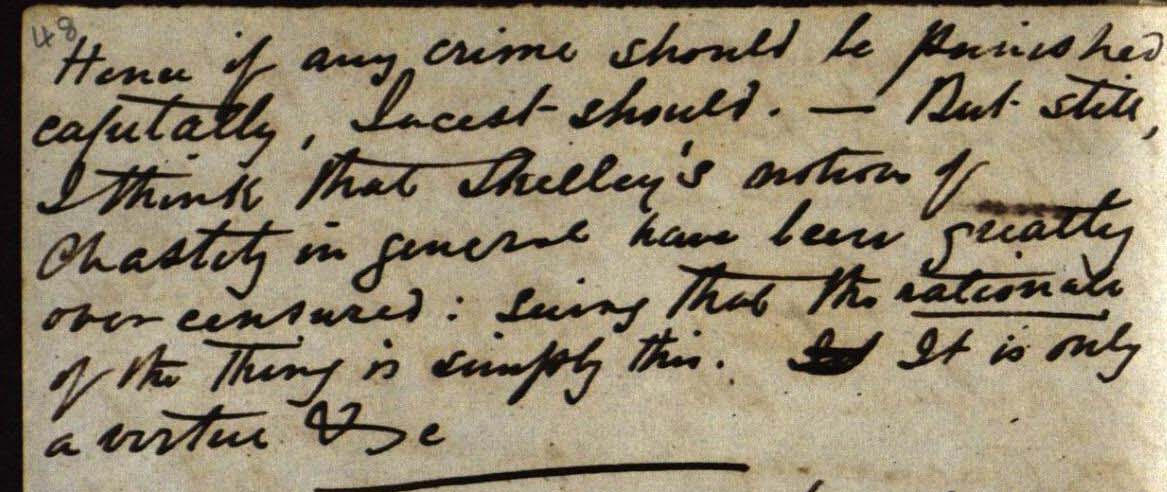 48
Hence if any crime should be punished
capitally, Incest should. — But still,
I think that Shelley's notions of
Chastity in general have been greatly
over censured: seeing that the rationale
of the Thing is simply this. It is only
a virtue &c